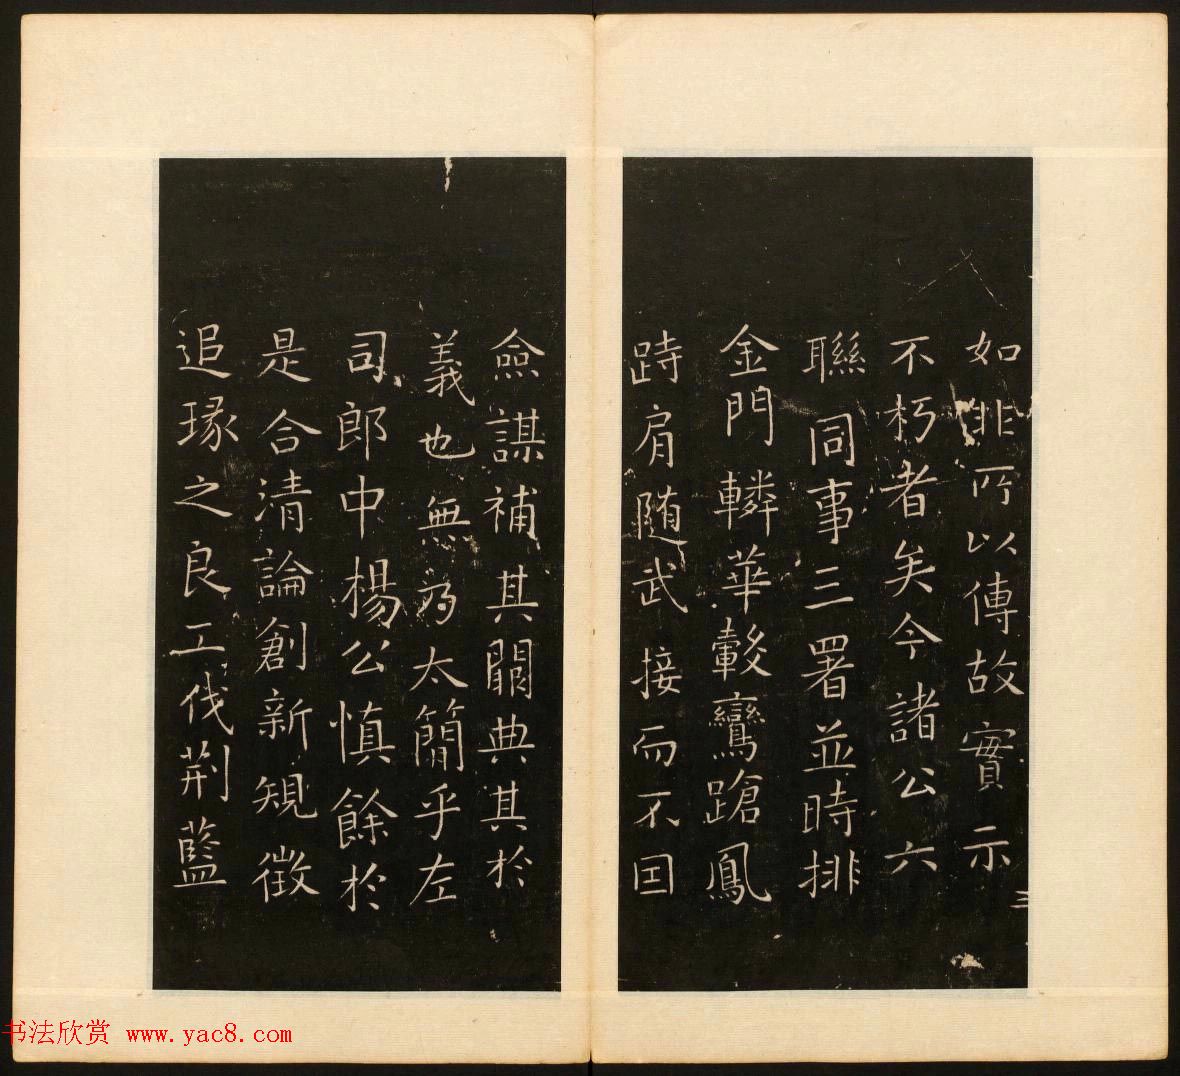 如非所以傳故實示
不朽者矣今諸公六
聯同事三署並時排
金門轔華轂鸞蹌鳳
跱肩随武接而不因
僉謀補其闕典其於
義也無乃太簡乎左
司郎中楊公慎餘於
是合清論創新規徵
追琢之良工伐荆藍
书法欣赏 www.yac8.com